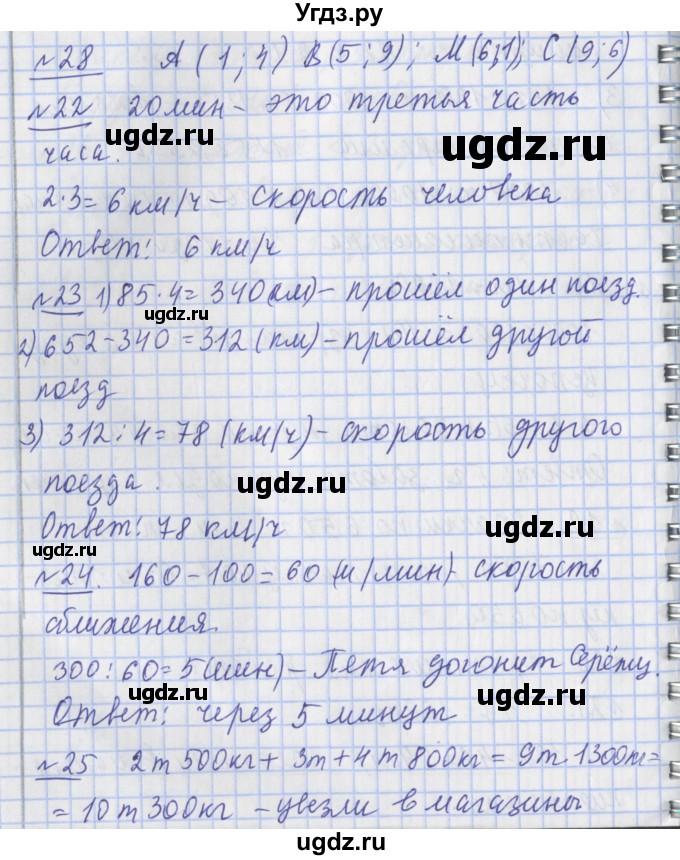 Угдз.ру
№28 А(1;4) В(5;9); М(6;1); С(9;6)
№22 20 мин - это третья часть
ugdz.ru ugdz.ru
часа.
ugdz.ru
2·3=6 км/ч - скорость человека
Ответ: 6 км/ч
ugdz.ru
ugdz.ru
№23 1) 85·4=340(км) - прошёл один поезд.
2) 652-340=312 (км) - прошёл другой
ugdz.ru ugdz.ru
поезд
3) 312:4=78 (км/ч) - скорость другого
ugdz.ru
поезда.
ugdz.ru
Ответ: 78 км/ч
ugdz.ru
ugdz.ru
№24. 160-100=60 (м/мин) - скорость
ugdz.ru
сближения.
300:60=5(мин) - Петя догонит Серёжу.
ugdz.ru ugdz.ru
Ответ: через 5 минут
№25 2т 500кг + 3т + 4т 800кг = 9т 1300т=
ugdz.ru
= 10т 300кг - увезли в магазины
ugdz.ru
ugdz.ru